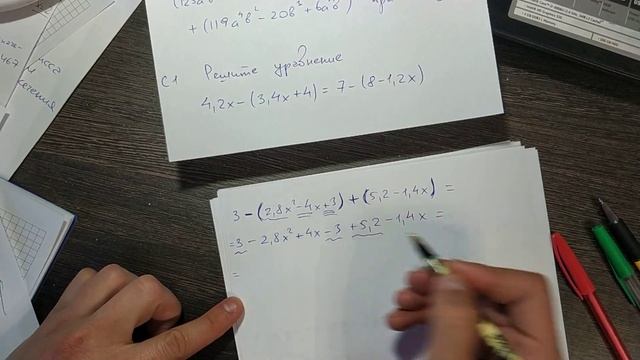 + (119a⁴b² - 20b³ + 6a
C1 Решите уравнение
4,2x - (3,4x + 4) = 7 - (8 - 1,2x)
3 - (2,8x² - 4x + 3) + (5,2 - 1,4x) =
= 3 - 2,8x² + 4x - 3 + 5,2 - 1,4x =
=